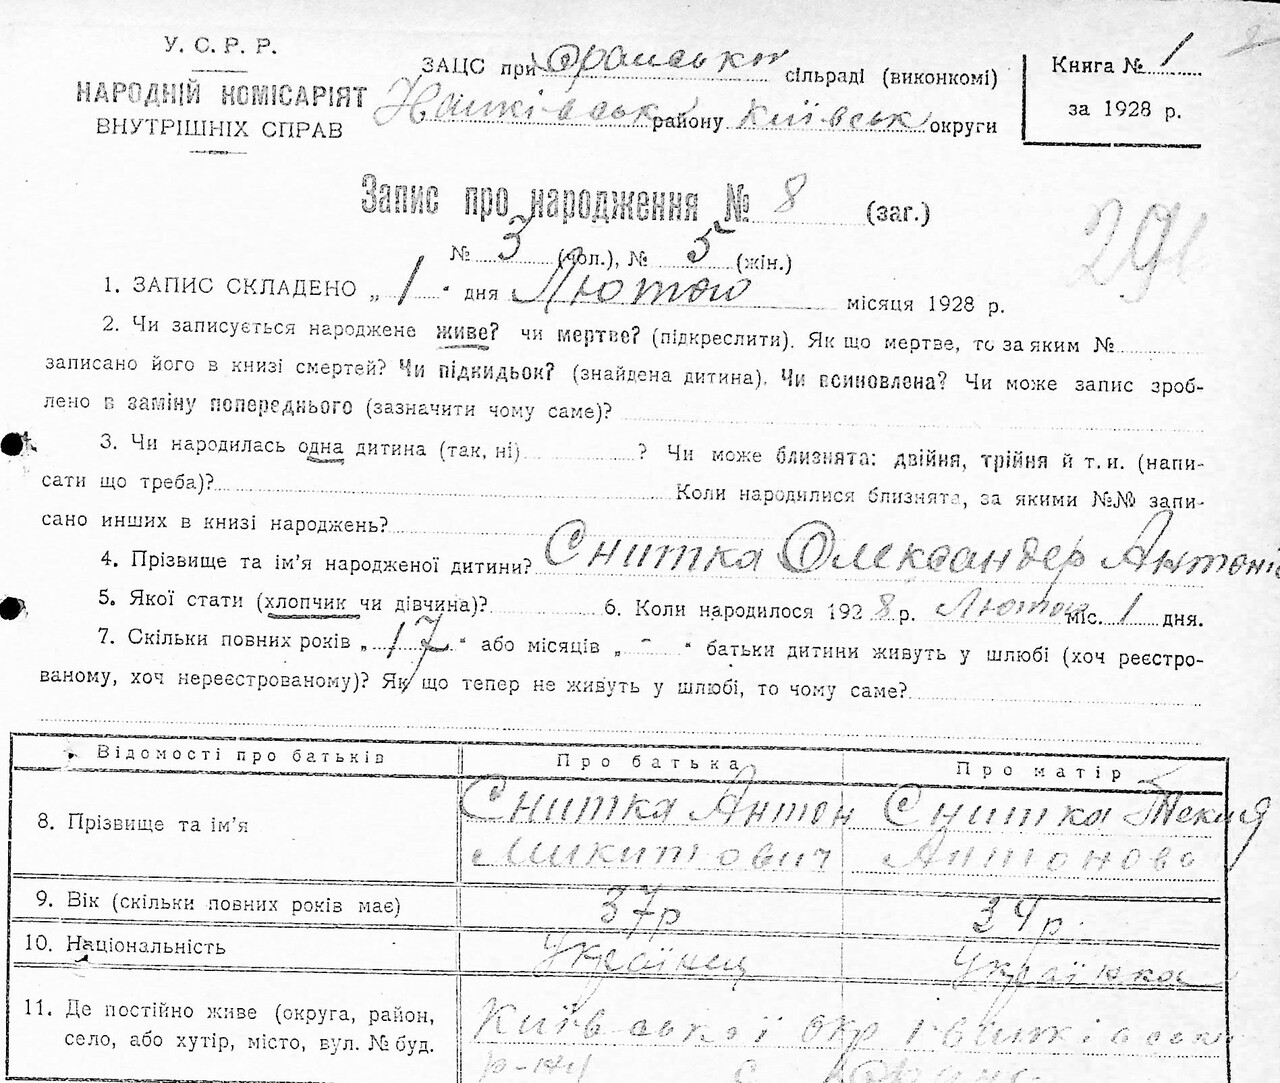 У. С. Р. Р.
НАРОДНІЙ КОМІСАРІЯТ
ВНУТРІШНІХ СПРАВ
ЗАЦС при сільраді (виконкомі)
району Київськ округи
Книга № 1
за 1928 р.
Запис про народження № 8 (заг.)
№ 3 (чол.), № 5 (жін.)
291
1. ЗАПИС СКЛАДЕНО „ 1 " дня Лютого місяця 1928 р.
2. Чи записується народжене живе? чи мертве? (підкреслити). Як що мертве, то за яким №
записано його в книзі смертей? Чи підкидьок? (знайдена дитина). Чи всиновлена? Чи може запис зроб-
лено в заміну попереднього (зазначити чому саме)?
3. Чи народилась одна дитина (так, ні) ? Чи може близнята: двійня, трійня й т. и. (напи-
сати що треба)? Коли народилися близнята, за якими №№ запи-
сано инших в книзі народжень?
4. Прізвище та ім'я народженої дитини? Снитка Олександер Антоні
5. Якої стати (хлопчик чи дівчина)? 6. Коли народилося 1928 р. Лютого міс. 1 дня.
7. Скільки повних років „ 17 " або місяців „ - " батьки дитини живуть у шлюбі (хоч реєстро-
ваному, хоч нереєстрованому)? Як що тепер не живуть у шлюбі, то чому саме?
Відомості про батьків Про батька Про матір
8. Прізвище та ім'я Снитка Антон Микитович Снитка Текля Антонова
9. Вік (скільки повних років має) 37 р 34 р.
10. Національність Українец Українка
11. Де постійно живе (округа, район,
село, або хутір, місто, вул. № буд.
Київської окр
р-ну с.